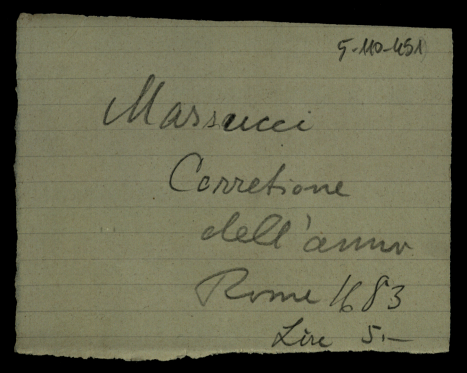 5-110-451
Massucci
Corretione
dell'anno
Rome 1683
Lire 5.-